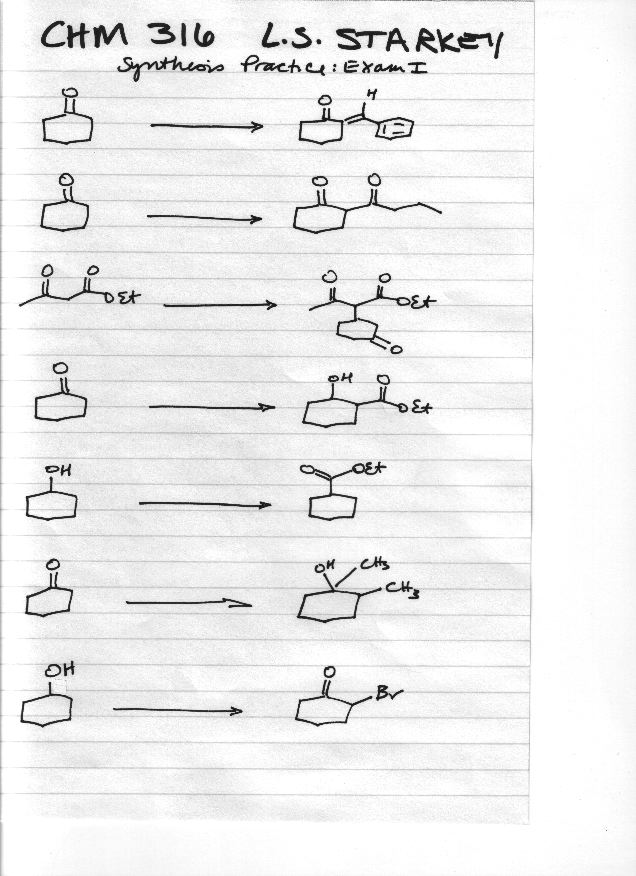 CHM 316 L.S. STARKEY
Synthesis Practice: Exam I
O
O H
O
O O
O O OEt
O O OEt O
O
OH O OEt
OH
O OEt
O
OH CH3 CH3
OH
O Br